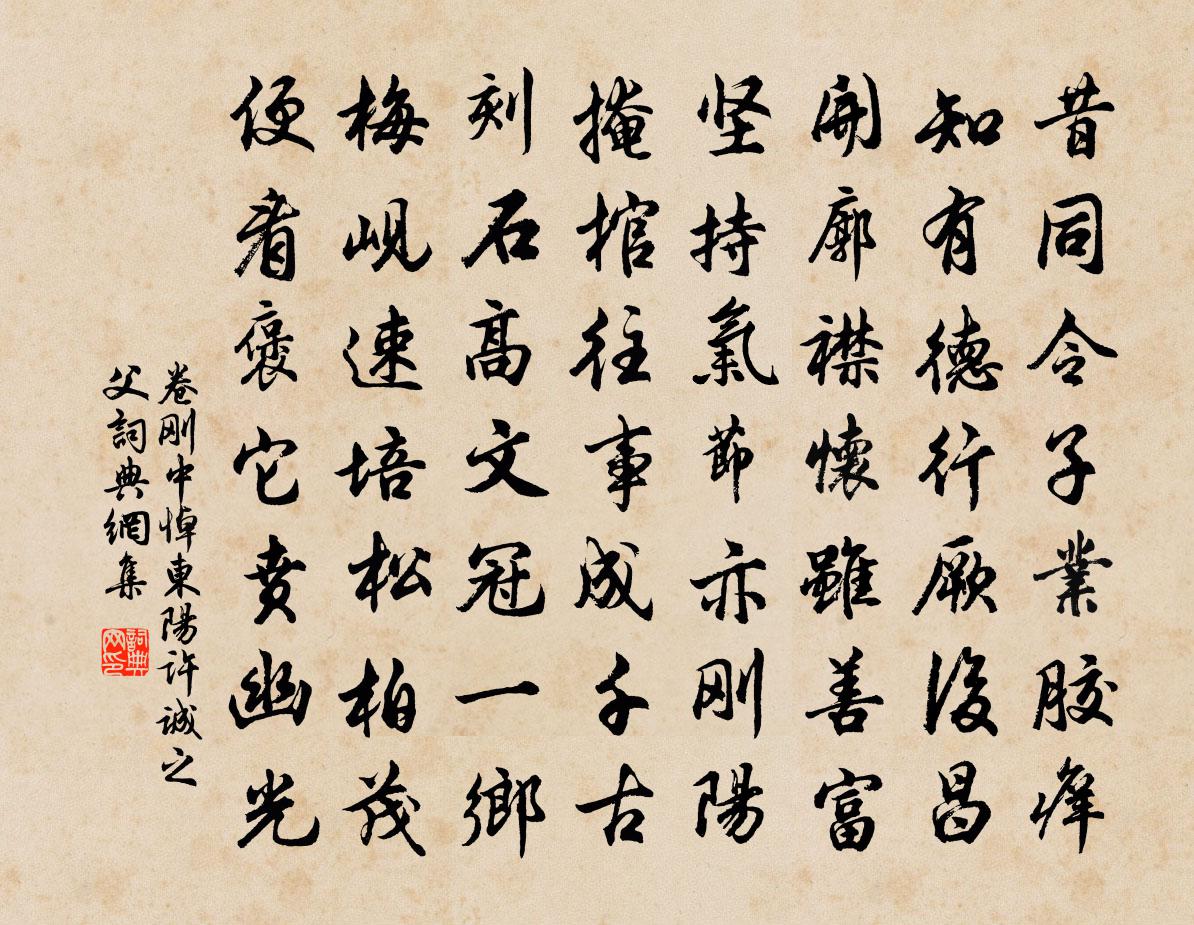 昔同令子業胶庠
知有德行厥後昌
開廓襟懷雖善富
坚持氣節亦刚陽
掩棺往事成千古
刻石高文冠一鄉
梅峴速培松柏茂
便看褒它賁幽光
卷刚中悼東陽許誠之
父詞典網集
詞典网印